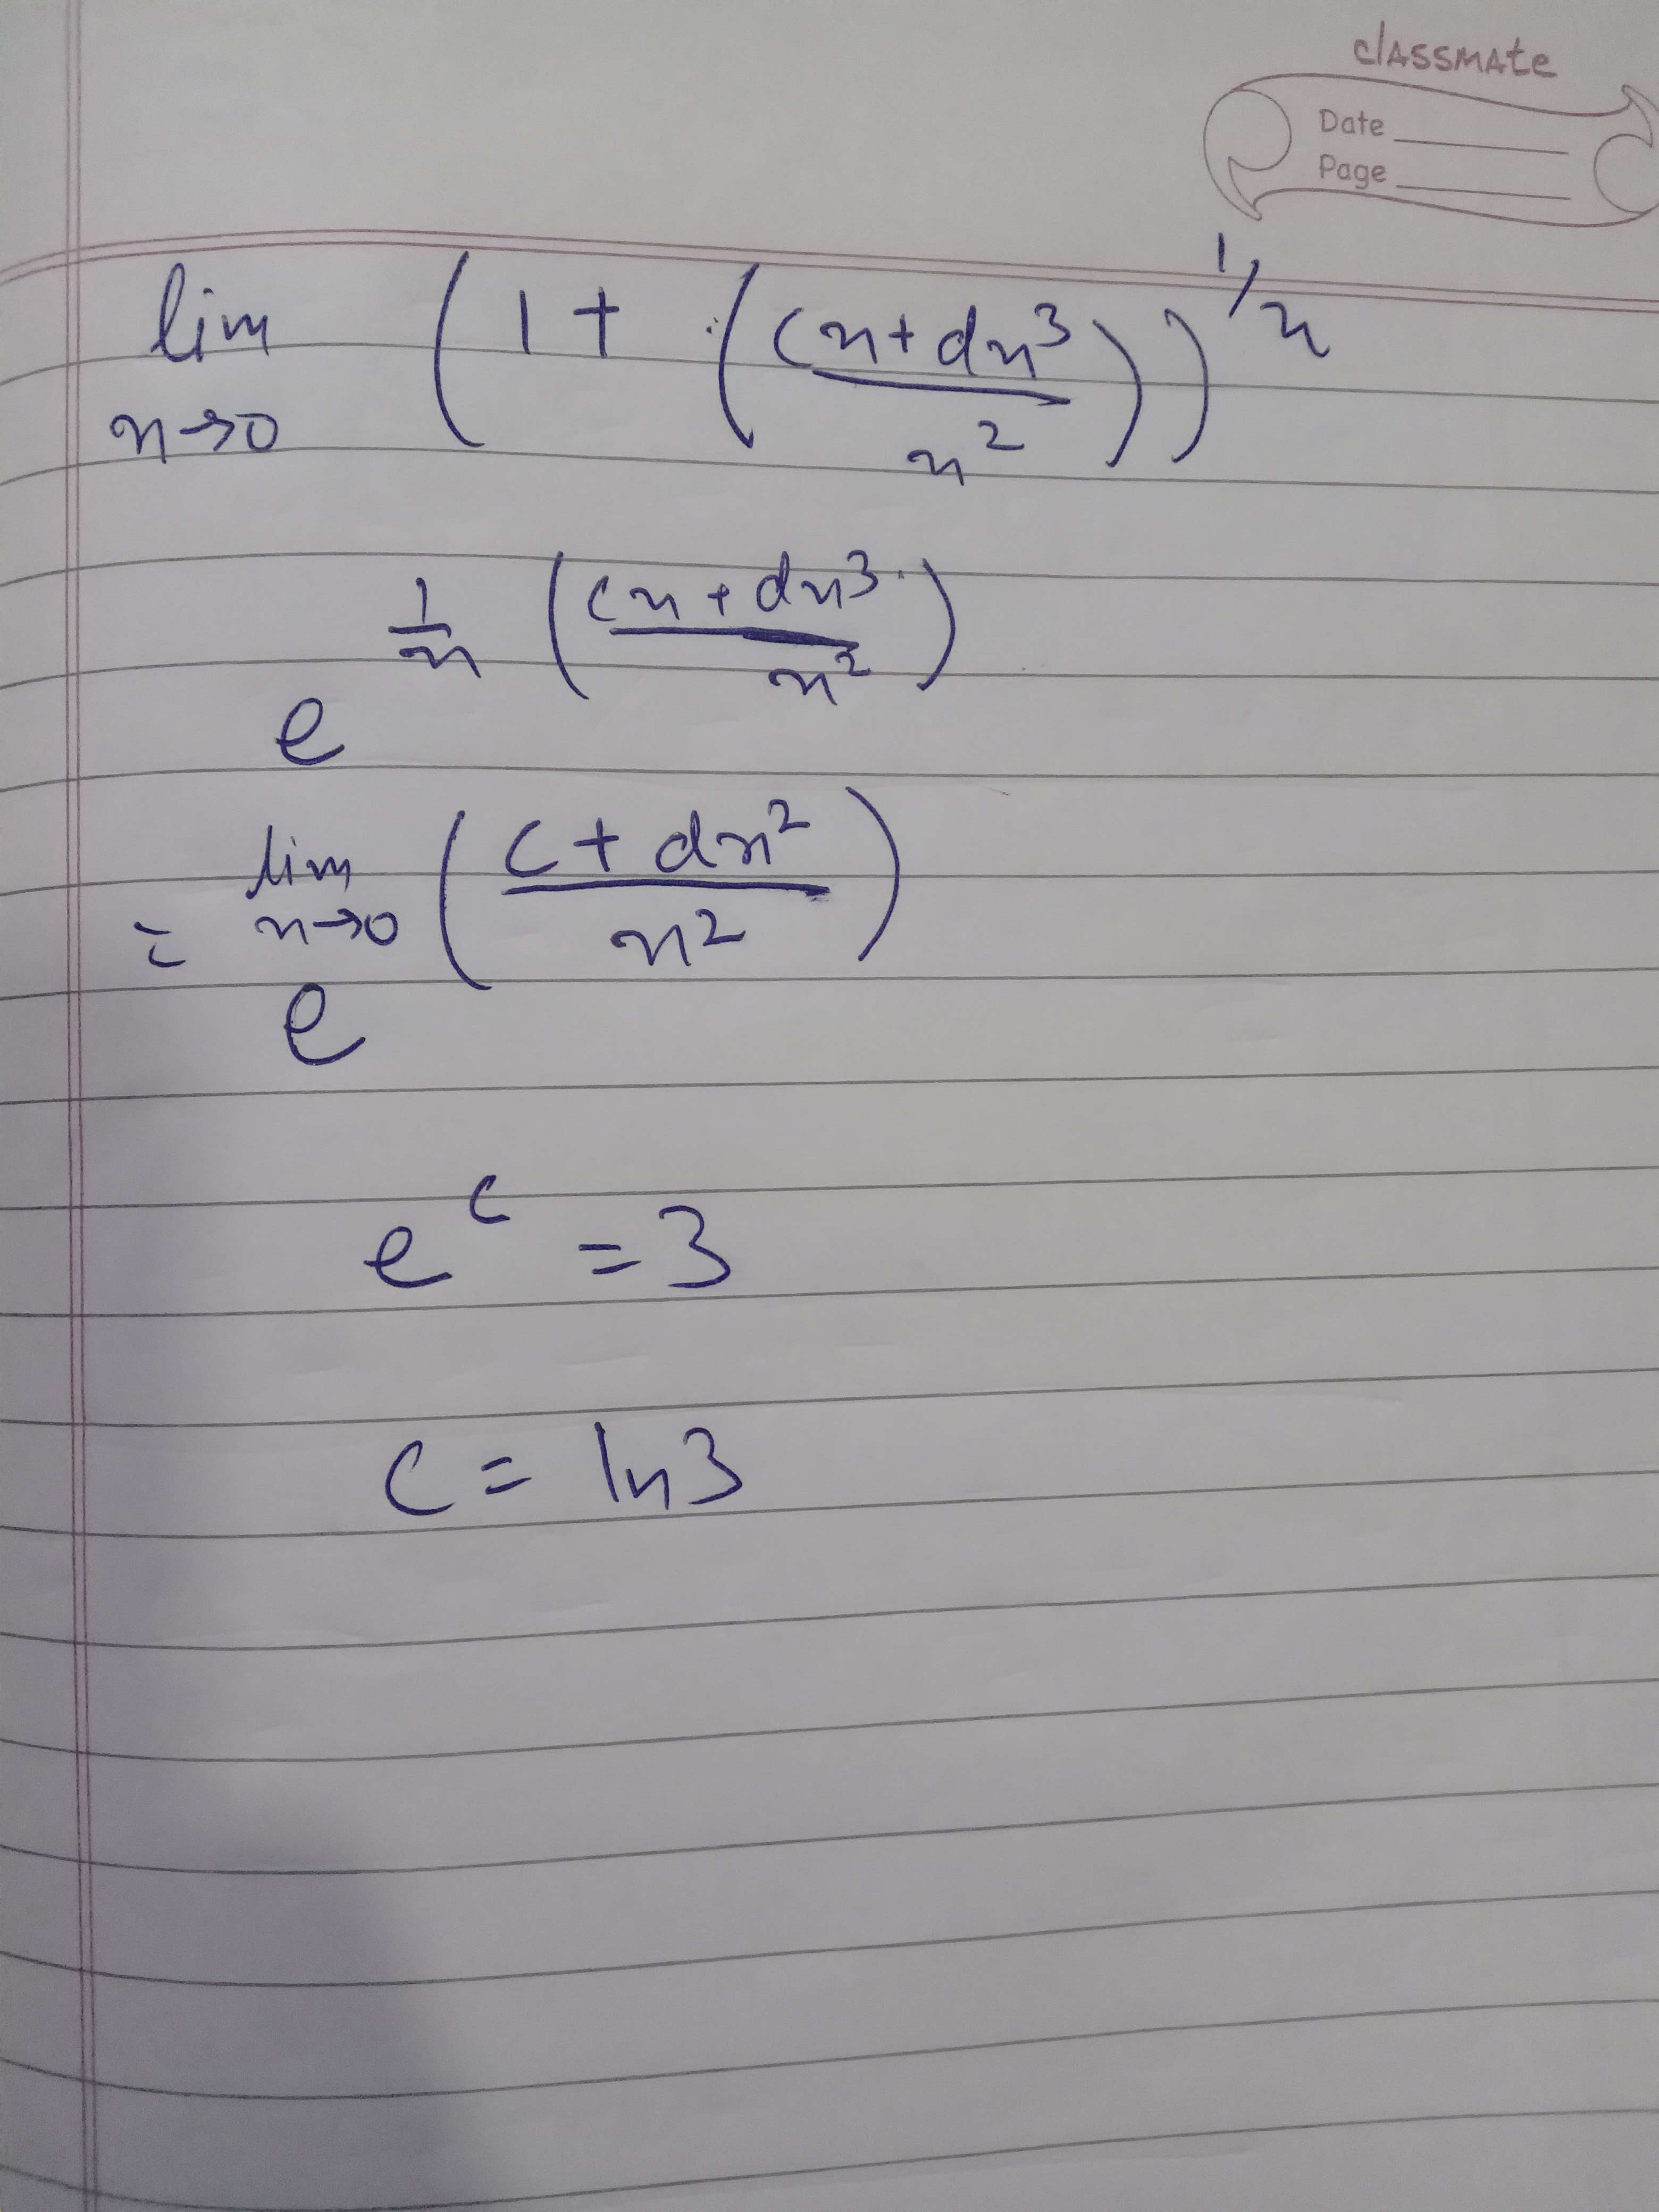 classmate
Date
Page
lim x→0 (1 + ((cx+dx³)/x²))^(1/x)
e^((1/x)((cx+dx³)/x²))
= e^(lim x→0 ((c+dx²)/x²))
e^c = 3
c = ln3